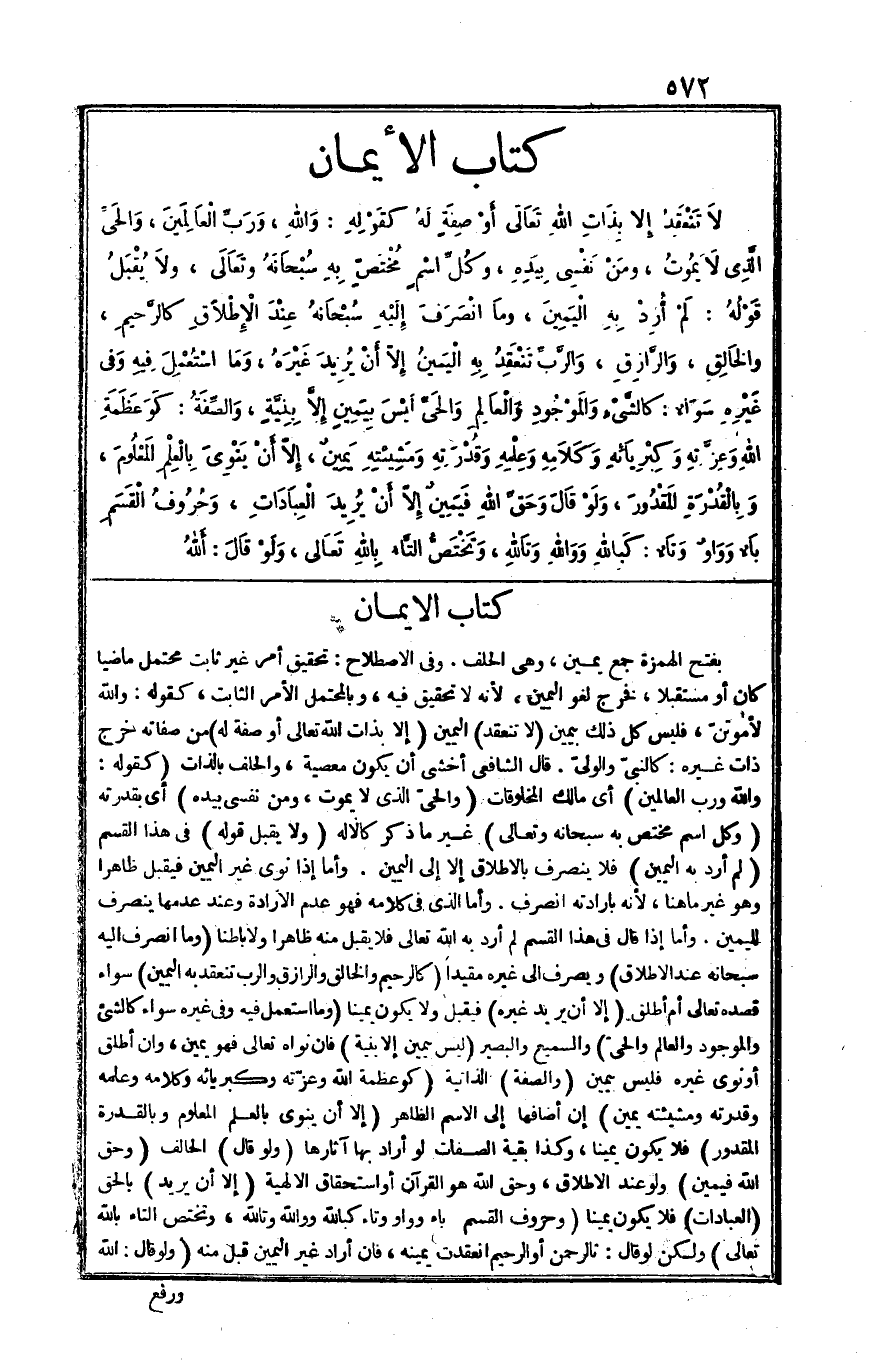 ٥٧٢
كتاب الأيمـان
لَا تَنْعَقِدُ إلا بِذَاتِ اللهِ تَعَالَى أَوْ صِفَةٍ لَهُ كَقَوْلِهِ : وَاللهِ ، وَرَبِّ الْعَالَمِينَ ، وَالحَىِّ
الَّذِى لَا يَمُوتُ ، ومَنْ نَفْسِى بِيَدِهِ ، وكُلِّ اسْمٍ مُخْتَصّ بِهِ سُبْحَانَهُ وتَعَالَى ، ولَا يُقْبَلُ
قَوْلُهُ : لَمْ أُرِدْ بِهِ الْيَمِينَ ، وما انْصَرَفَ إلَيْهِ سُبْحَانَهُ عِنْدَ الْإِطْلَاقِ كالرَّحِيمِ ،
والخَالِقِ ، والرَّازِقِ ، والرَّبِّ تَنْعَقِدُ بِهِ الْيَمِينُ إلاّ أَنْ يُرِيدَ غَيْرَهُ ، وَمَا اسْتُعْمِلَ فِيهِ وَفى
غَيْرِهِ سَوَاء : كالشَّىْءِ وَالمَوْجُودِ وَالْعَالِمِ وَالحَىِّ لَيْسَ بِيَمِينٍ إلاَّ بِنِيَّةٍ ، وَالصِّفَةُ : كَوَعَظَمَةِ
اللهِ وَعِزَّتِهِ وَكِبْرِيَائِهِ وَكَلَامِهِ وَعِلْمِهِ وَقُدْرَتِهِ وَمَشِيئَتِهِ يَمِينٌ ، إلاّ أَنْ يَنْوِىَ بِالْعِلْمِ المَعْلُومَ ،
وَبِالْقُدْرَةِ المَقْدُورَ ، وَلَوْ قَالَ وَحَقِّ اللهِ فَيَمِينٌ إلاّ أَنْ يُرِيدَ الْعِبَادَاتِ ، وَحُرُوفُ الْقَسَمِ
بَاء وَوَاوٌ وَتَاء : كَبِاللهِ وَوَاللهِ وَتَاللهِ ، وَتَخْتَصُّ التَّاء بِاللهِ تَعَالَى ، وَلَوْ قَالَ : أَللهُ
كتاب الايمـان
بفتح الهمزة جمع يمـين ، وهى الحلف . وفى الاصطلاح : تحقيق أمر غير ثابت محتمل ماضيا
كان أو مستقبلا ، فخرج لغو اليمين ، لأنه لا تحقيق فيه ، وبالمحتمل الأمر الثابت ، كـقوله : والله
لأموتنّ ، فليس كل ذلك بيمين (لا تنعقد) اليمين ( إلا بذات الله تعالى أو صفة له)من صفاته خرج
ذات غـيره : كالنبىّ والولىّ . قال الشافعى أخشى أن يكون معصية ، والحلف بالذات ( كـقوله :
والله ورب العالمين ) أى مالك المخلوقات ( والحىّ الذى لا يموت ، ومن نفسى بيده ) أى بقدرته
( وكل اسم مختص به سبحانه وتعـالى ) غـير ما ذكر كالاله ( ولا يقبل قوله ) فى هذا القسم
( لم أرد به اليمين ) فلا ينصرف بالاطلاق إلا إلى اليمين . وأما إذا نوى غير اليمين فيقبل ظاهرا
وهو غير ماهنا ، لأنه بارادته انصرف . وأما الذى فى كلامه فهو عدم الارادة وعند عدمها ينصرف
لليمين . وأما إذا قال فى هذا القسم لم أرد به الله تعالى فلا يقبل منه ظاهرا ولا باطنا (وما انصرف اليه
سبحانه عند الاطلاق) ويصرف الى غيره مقيدا (كالرحيم والخالق والرازق والرب تنعقد به اليمين) سواء
قصده تعالى أم أطلق ( إلا أن يريد غيره) فيقبل ولا يكون يمينا (وما استعمل فيه وفى غيره سواء كالشئ
والموجود والعالم والحىّ) والسميع والبصير (ليس بيمين إلا بنية ) فان نواه تعالى فهو يمين ، وان أطلق
أو نوى غيره فليس بيمين ( والصفة ) الذاتية ( كوعظمة الله وعزّته وكـبريائه وكلامه وعلمه
وقدرته ومشيئته يمين ) إن أضافها إلى الاسم الظاهر ( إلا أن ينوى بالعـلم المعلوم وبالقـدرة
المقدور ) فلا يكون يمينا ، وكـذا بقية الصـفات لو أراد بها آثارها ( ولو قال ) الحالف ( وحق
الله فيمين ) ولو عند الاطلاق ، وحق الله هو القرآن أو استحقاق الالهية ( إلا أن يريد ) بالحق
(العبادات) فلا يكون يمينا ( وحروف القسم باء وواو وتاء كبالله ووالله وتالله ، وتختص التاء بالله
تعالى ) ولـكن لو قال : تالرحمن أو الرحيم انعقدت يمينه ، فان أراد غير اليمين قبل منه ( ولو قال : الله
ورفع